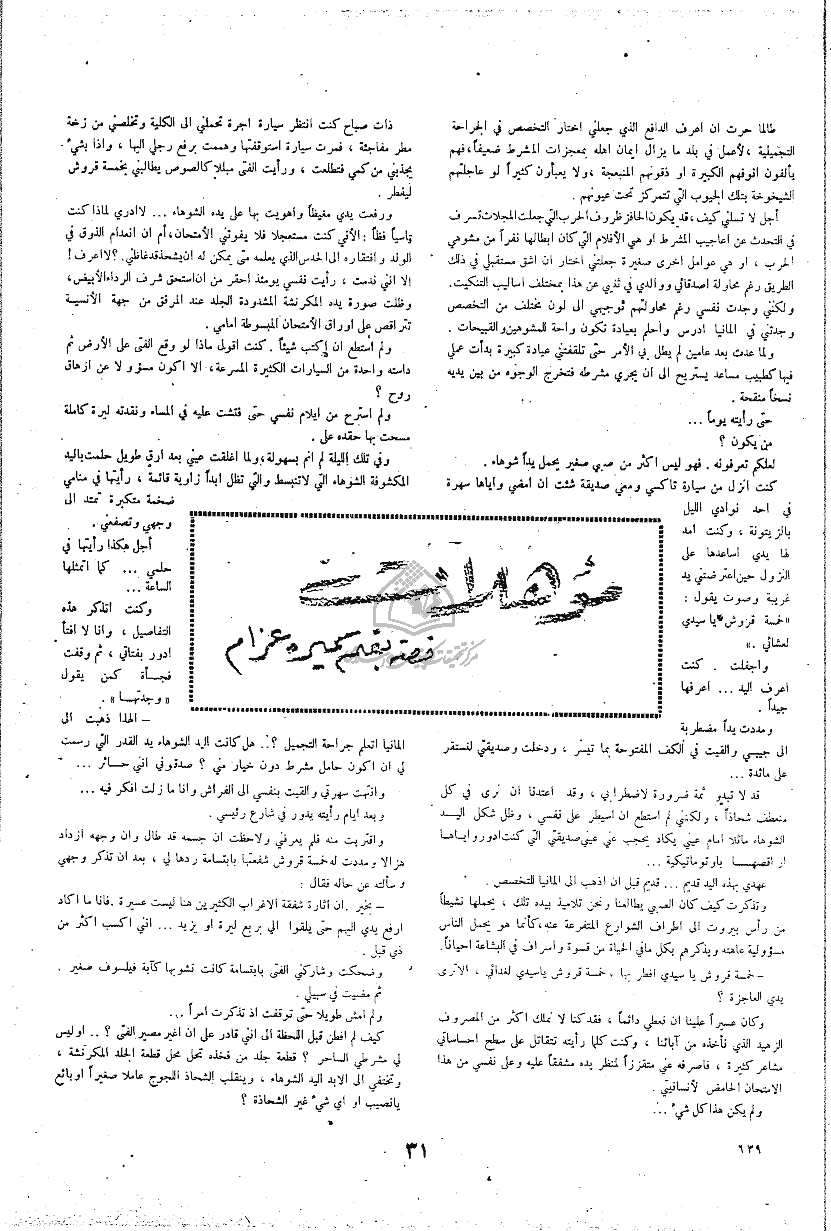 طالما حرت ان اعرف الدافع الذي جعلني اختار التخصص في الجراحة
التجميلية ، لأعمل في بلد ما يزال ايمان اهله بمعجزات المشرط ضعيفاً، فهم
يألفون انوفهم الكبيرة او ذقونهم المنبعجة ، ولا يعبأون كثيراً لو عاجلتهم
الشيخوخة بتلك الجيوب التي تتمركز تحت عيونهم .
أجل لا تسلني كيف ، قد يكون الحافز ظروف الحرب التي جعلت المجلات تسرف
في التحدث عن اعاجيب المشرط او هي الأفلام التي كان ابطالها نفراً من مشوهي
الحرب ، او هي عوامل اخرى صغيرة جعلتني اختار ان اشق مستقبلي في ذلك
الطريق رغم محاولة اصدقائي ووالدي في ثنيي عن هذا بمختلف اساليب التنكيت.
ولكنني وجدت نفسي رغم محاولتهم توجيهي الى لون مختلف من التخصص
وجدتني في المانيا ادرس وأحلم بعيادة تكون واحة للمشوهين والقبيحات .
ولما عدت بعد عامين لم يطل بي الأمر حتى تلقفتني عيادة كبيرة بدأت عملي
فيها كطبيب مساعد يستريح الى ان يجري مشرطه فتخرج الوجوه من بين يديه
نسخاً منقحة .
حتى رأيته يوماً ...
من يكون ؟
لعلكم تعرفونه . فهو ليس اكثر من صبي صغير يحمل يداً شوهاء .
كنت انزل من سيارة تاكسي ومعي صديقة شئت ان امضي واياها سهرة
في احد نوادي الليل
بالزيتونة ، وكنت امد
لها يدي أساعدها على
النزول حين اعترضتني يد
غريبة وصوت يقول :
« خمسة قروش يا سيدي
لعشائي .»
واجفلت . كنت
اعرف اليد ... اعرفها
جيداً .
ومددت يداً مضطربة
الى جيبي والقيت في الكف المفتوحة بما تيسر ، ودخلت وصديقتي لنستقر
على مائدة ...
قد لا تبدو ثمة ضرورة لاضطرابي ، وقد اعتدنا ان نرى في كل
منعطف شحاذاً ، ولكنني لم استطع ان اسيطر على نفسي ، وظل شكل اليـد
الشوهاء ماثلا امام عيني يكاد يحجب عني عيني صديقتي التي كنت ادور وايـاها
اراقصهـا باوتوماتيكية ...
عهدي بهذه اليد قديم ... قديم قبل ان اذهب الى المانيا للتخصص .
وتذكرت كيف كان الصبي يطالعنا ونحن تلاميذ بيده تلك ، يحملها نشيطاً
من رأس بيروت الى اطراف الشوارع المتفرعة عنه، كأنما هو يحمل الناس
مسؤولية عاهته ويذكرهم بكل ما في الحياة من قسوة واسراف في البشاعة احياناً.
– خمسة قروش يا سيدي افطر بها ، خمسة قروش يا سيدي لغدائي ، الا ترى
يدي العاجزة ؟
وكان عسيراً علينا ان نعطي دائماً ، فقد كنا لا نملك اكثر من المصروف
الزهيد الذي نأخذه من آبائنا ، وكنت كلما رأيته تتقاتل على سطح احساساتي
مشاعر كثيرة ، فأصرفه عني متقززاً لمنظر يده مشفقاً عليه وعلى نفسي من هذا
الامتحان الحامض لأنسانيتي .
ولم يكن هذا كل شيء ...
شوهاء
قصة بقلم سميره عزام
ذات صباح كنت انتظر سيارة اجرة تحملني الى الكلية وتخلصني من زخة
مطر مفاجئة ، فمرت سيارة استوقفتها وهممت برفع رجلي اليها ، واذا بشيء
يجذبني من كمي فتطلعت ، ورأيت الفتى مبللا كالصوص يطالبني بخمسة قروش
ليفطر .
ورفعت يدي مغيظاً وأهويت بها على يده الشوهاء ... لا ادري لماذا كنت
قاسياً فظاً : الأني كنت مستعجلا فلا يفوتني الأمتحان، أم ان انعدام الذوق في
الولد وافتقاره الى الحدس الذي يعلمه متى يمكن له ان يشحذ قد غاظني . ؟ لا اعرف !
الا اني ندمت ، رأيت نفسي يومئذ احقر من ان استحق شرف الرداء الأبيض،
وظلت صورة يده المكرنشة المشدودة الجلد عند المرفق من جهة الأنسية
تتراقص على اوراق الأمتحان المبسوطة امامي .
ولم أستطع ان إكتب شيئاً . كنت اقول ماذا لو وقع الفتى على الأرض ثم
داسته واحدة من السيارات الكثيرة المسرعة، الا اكون مسؤولا عن ازهاق
روح ؟
ولم استرح من ايلام نفسي حتى فتشت عليه في المساء ونقدته ليرة كاملة
مسحت بها حقده علي .
وفي تلك الليلة لم انم بسهولة، ولما اغلقت عيني بعد ارق طويل حلمت باليد
المكشوفة الشوهاء التي لا تنبسط والتي تظل ابداً زاوية قائمة ، رأيتها في منامي
ضخمة متكبرة تمتد الى
وجهي وتصفعني .
أجل هكذا رأيتها في
حلمي ... كما اتمثلها
الساعة ...
وكنت اتذكر هذه
التفاصيل ، وانا لا افتأ
ادور بفتاتي ، ثم وقفت
فجـأة كمن يقول
« وجدتهـا » .
– الهذا ذهبت الى
المانيا اتعلم جراحة التجميل ؟.. هل كانت اليد الشوهاء يد القدر التي رسمت
لي ان اكون حامل مشرط دون خيار مني ؟ صدقوني اني حـائر ...
وانتهت سهرتي والقيت بنفسي الى الفراش وانا ما زلت افكر فيه ...
وبعد ايام رأيته يدور في شارع رئيسي .
واقتربت منه فلم يعرفني ولاحظت ان جسمه قد طال وان وجهه ازداد
هزالا ومددت له خمسة قروش شفعتها بابتسامة ردها لي ، بعد ان تذكر وجهي
وسألته عن حاله فقال :
– بخير . ان اثارة شفقة الاغراب الكثيرين هنا ليست عسيرة . فانا ما اكاد
ارفع يدي اليهم حتى يلقوا الي بربع ليرة او يزيد ... اني اكسب اكثر من
ذي قبل .
وضحكت وشاركني الفتى بابتسامة كانت تشوبها كآبة فيلسوف صغير .
ثم مضيت في سبيلي .
ولم امش طويلا حتى توقفت اذ تذكرت امراً ...
كيف لم افطن قبل اللحظة الى اني قادر على ان اغير مصير الفتى ؟ .. او ليس
لي مشرطي الساحر ؟ قطعة جلد من فخذه تحمل محل قطعة الجلد المكرنشة ،
وتختفي الى الابد اليد الشوهاء ، وينقلب الشحاذ اللجوج عاملا صغيراً او بائع
يانصيب او اي شيء غير الشحاذة ؟
٦٣٩
٣١